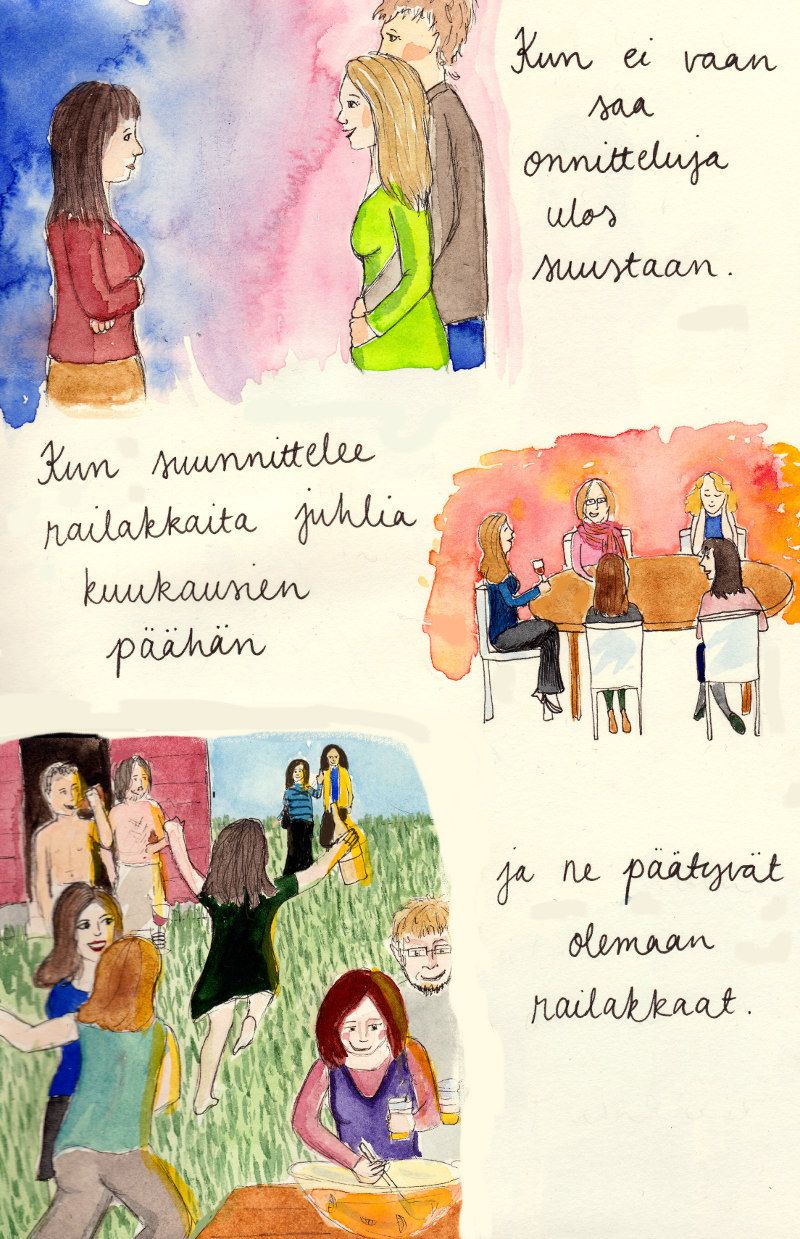 Kun ei vaan
saa
onnitteluja
ulos
suustaan.
Kun suunnittelee
railakkaita juhlia
kuukausien
päähän
ja ne päätyvät
olemaan
railakkaat.